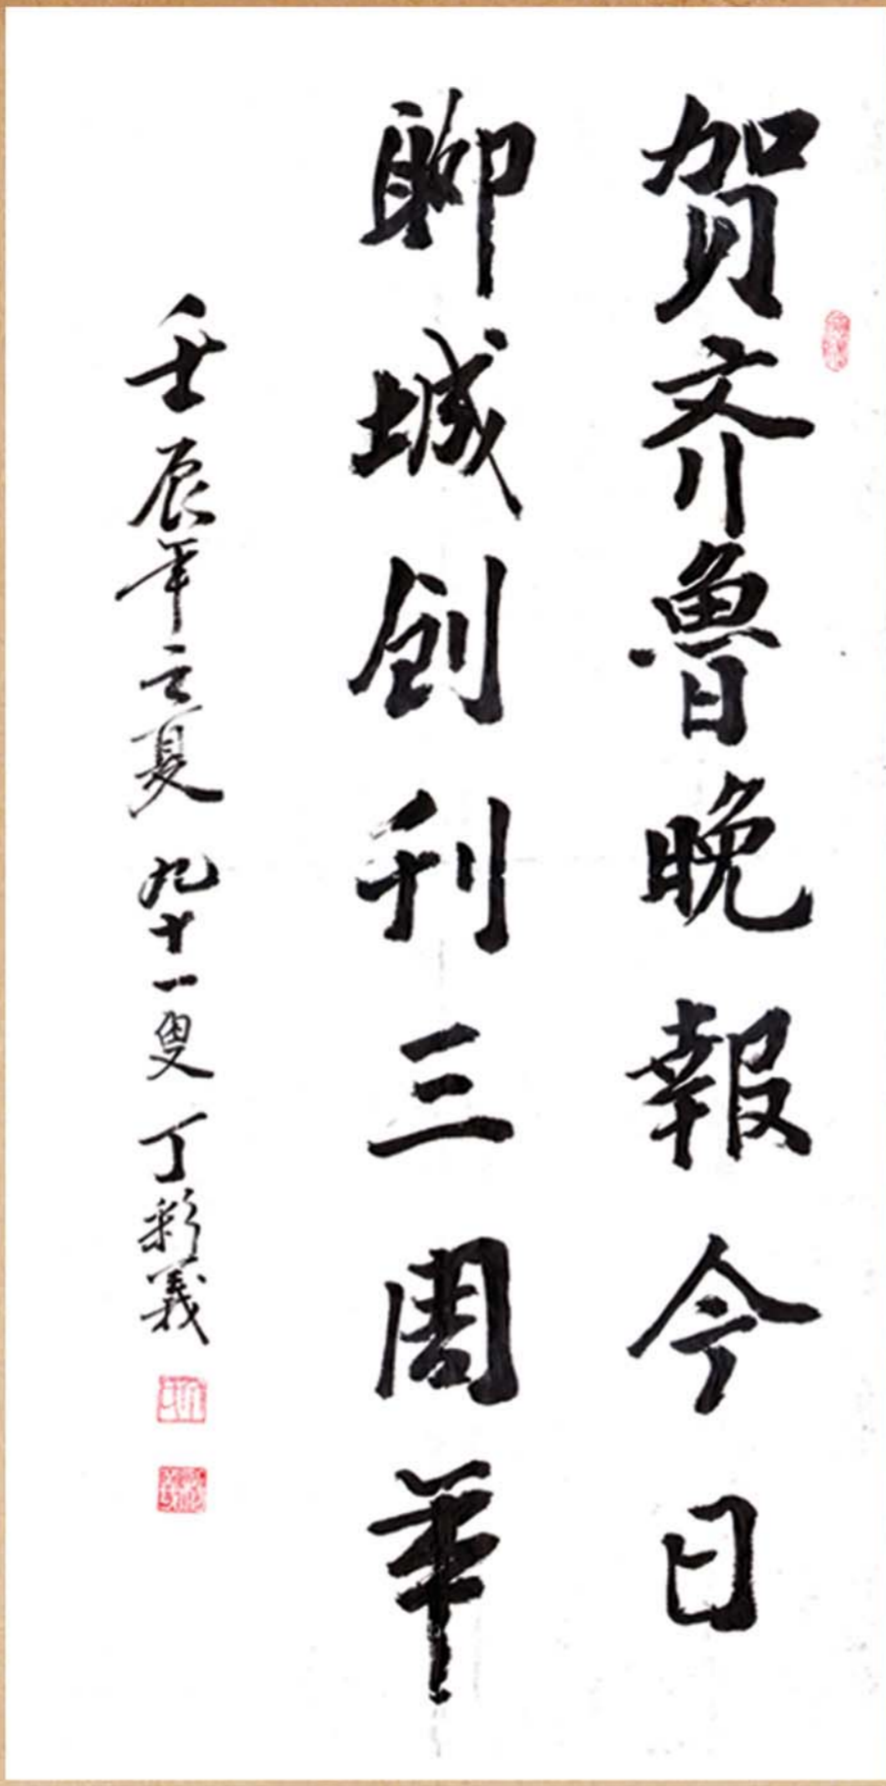 贺齐魯晚報今日
聊城创刊三周年
壬辰年立夏 九十一叟 丁彩義